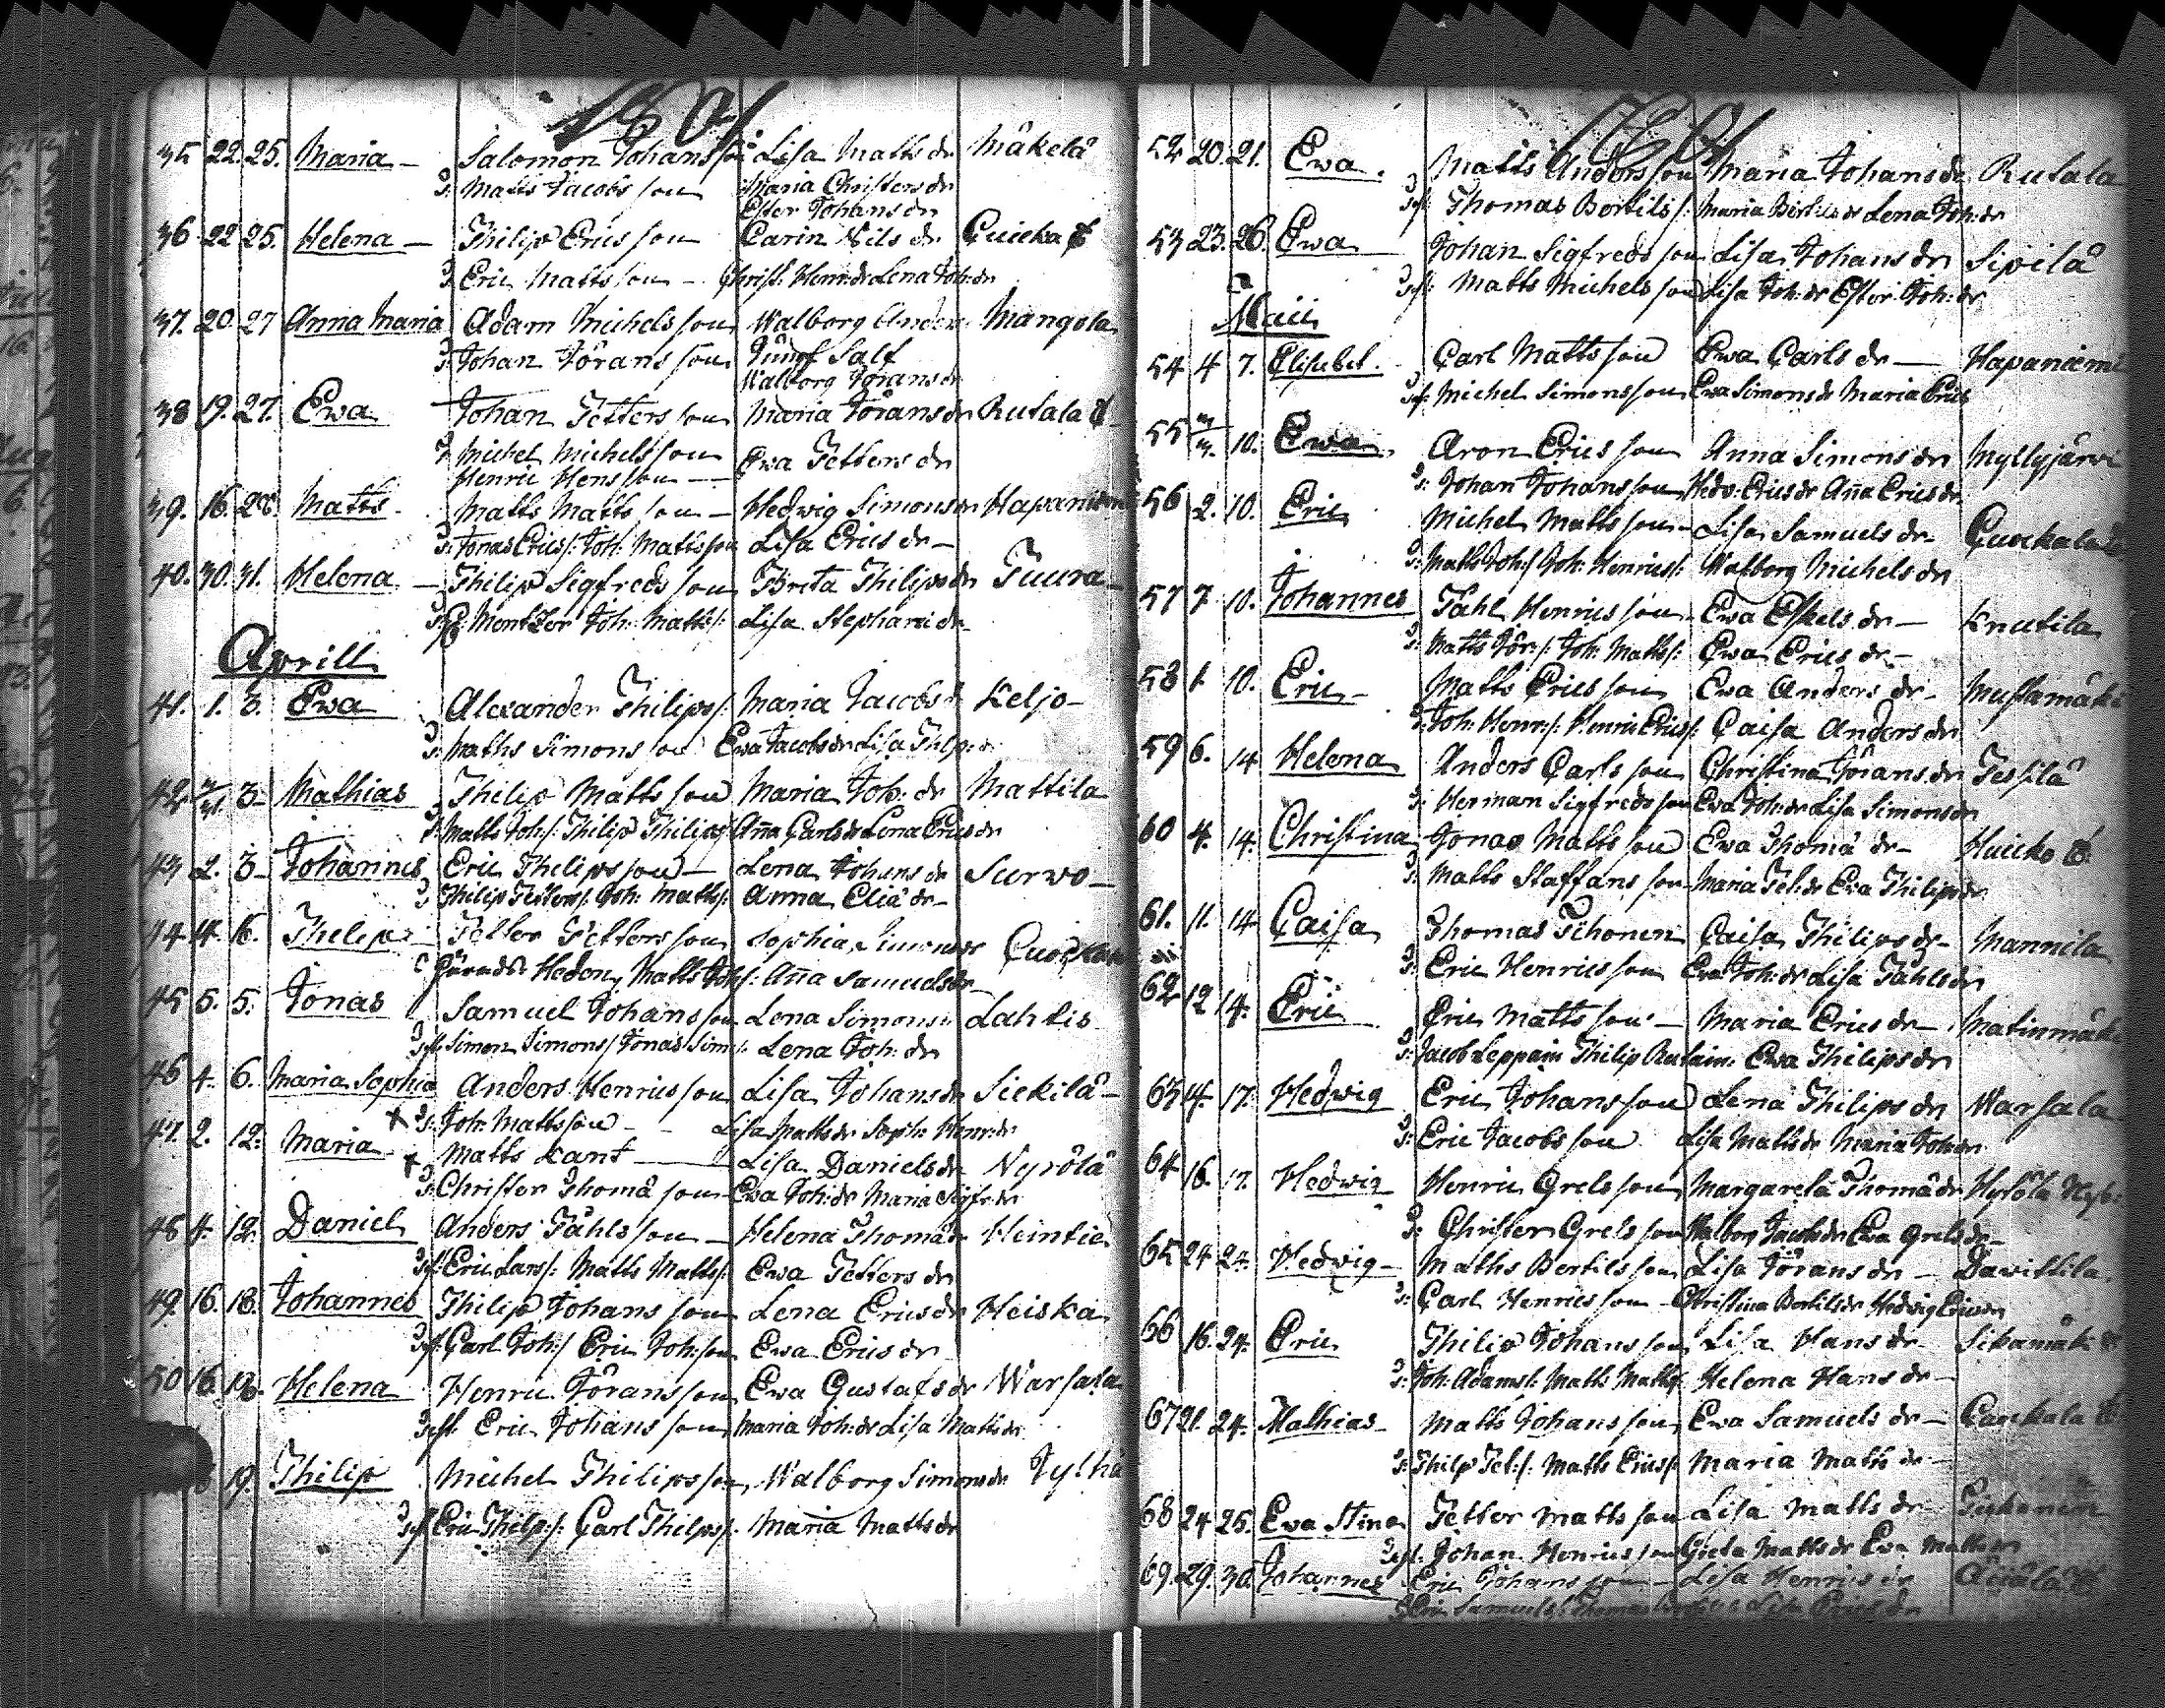 1801
35 22. 25. Maria – Salomon Johans son Lisa Matts dr Mäkelä
Matts Jacobs son Maria Christers dr
Ester Johans dr
36 22 25. Helena – Philip Erics son Carin Nils dr
Eric Matts son – Christ: Henr:dr Lena Joh:dr
37. 20. 27 Anna Maria Adam Michels son Walborg Anders Mangola
Johan Jörans son Jungf Salf
Walborg Jörans dr
38 19. 27. Ewa Johan Petters son Maria Jörans dr Rutala
Michel Michels son Ewa Petters dr
Henric Hens son –
39. 16. 28. Matts – Matts Matts son – Hedwig Simons dr Hapaniemi
Jonas Erics s: Joh: Matts son Lisa Erics dr –
40. 30. 31. Helena – Philip Sigfreds son Brita Philips dr Puura
Mentzer Joh: Matts s: Lisa Stephani dr –
Aprill
41. 1. 3. Ewa Alexander Philips s: Maria Jacobs dr Keljo –
Maths Simons son Ewa Jacobs dr Lisa Philp: dr
42 3 – Mathias Philip Matts son Maria Joh: dr Mattila
Matts Joh: s: Philip Philips s: Anna Carls dr Lena Erics dr
43 2. 3 – Johannes Eric Philips son – Lena Johans dr Surwo –
Philip Petters s: Joh: Matts s: Anna Eliä dr –
44 Philip Petter Petters son Sophia Simons dr
Heden, Matts Joh s: Anna Samuels dr –
45 5. 5. Jonas Samuel Johans son Lena Simons dr Lahtis
Simon Simons s: Jonas Sim: s: Lena Joh: dr
46 4. 6. Maria Sophia Anders Henrics son Lisa Johans dr Siekilä –
x Joh: Matts son – – Lisa Matts dr Soph: Henr:dr
47. 2. 12. Maria – x Matts Kant – Lisa Daniels dr Nyrölä
Christer Thomä son – Ewa Joh: dr Maria Sigfr:dr
48 4. 12. Daniel Anders Påhls son – Helena Thomä dr Heintie
Eric Lars s: Matts Matts s: Ewa Petters dr
49. 16. 18. Johannes Philip Johans son Lena Erics dr Heiska
Carl Joh: s: Eric Joh: son Ewa Erics dr
50 16. 18. Helena Henric Jörans son Ewa Gustafs dr Warsala
Eric Johans son Maria Joh: dr Lisa Matts dr
19. Philip Michel Philips son, Walborg Simons dr
Eric Philp: s: Carl Philps s: Maria Matts dr
1801
52 20. 21. Ewa. Matts Anders son Maria Johans dr Rutala
Thomas Bertils s: Maria Bertils dr Lena Joh: dr
53 23. 26. Ewa Johan Sigfreds son Lisa Johans dr Sipilä
Matts Michels son Lisa Joh: dr Ester Joh: dr
Maii
54 4 7. Elisabet. Carl Matts son Ewa Carls dr – Hapaniemi
Michel Simons son Ewa Simons dr Maria Erics
55 10. Ewa. Aron Erics son Anna Simons dr Myllyjärvi
Johan Johans son Hedv: Erics dr Anna Erics dr
56 2. 10. Eric Michel Matts son – Lisa Samuels dr
Matts Joh: s: Joh: Henrics s: Walborg Michels dr
57 7 10. Johannes Påhl Henrics son – Ewa Eskels dr – Knutila
Matts Jör: s: Joh: Matts s: Ewa Erics dr –
58 1. 10. Eric – Matts Erics son Ewa Anders dr – Mustamäki
Joh: Henr: s: Henric Erics s: Caisa Anders dr
59 6. 14 Helena Anders Carls son Christina Jörans dr Pessilä
Herman Sigfreds son Ewa Joh: dr Lisa Simons dr
60 4. 14. Christina Jonas Matts son Ewa Thomä dr –
Matts Staffans son – Maria Pet: dr Ewa Philips dr
61. 11. 14 Caisa Thomas Pihonen Caisa Philips dr – Mannila
Eric Henrics son Ewa Joh: dr Lisa Påhls dr
62 12 14. Eric Eric Matts son – Maria Erics dr – Matinmäki
Jacob Leppäin Philip Rutain: Ewa Philips dr
63 14. 17. Hedwig Eric Johans son Lena Philips dr Warsala
Eric Jacobs son Lisa Matts dr Maria Joh: dr
64 16. 17. Hedwig Henric Grels son Margareta Thomä dr
Christer Grels son Walborg Jacobs dr Ewa Grels dr –
65 24 24. Hedwig – Maths Bertils son Lisa Jörans dr – Dawittila.
Carl Henrics son – Christina Bertils dr Hedwig Erics dr
66 16. 24. Eric Philip Johans son Lisa Hans dr – Sikamäk
Joh: Adams s: Matts Matts s: Helena Hans dr –
67 21. 24. Mathias – Matts Johans son Ewa Samuels dr –
Philp Pet: s: Matts Erics s: Maria Matts dr –
68 24 25. Ewa Stina Petter Matts son Lisa Matts dr
Johan Henrics son Greta Matts dr Ewa Matts dr
69. 29. 30. Johannes Eric Johans son – Lisa Henrics dr
Eric Samuels s: Lisa Erics dr